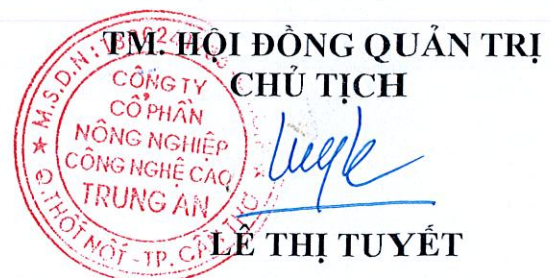 TM. HỘI ĐỒNG QUẢN TRỊ
CHỦ TỊCH
M.S.D.N:
CÔNG TY
CỔ PHẦN
NÔNG NGHIỆP
CÔNG NGHỆ CAO
TRUNG AN
Q.THỐT NỐT - TP. CẦN
LÊ THỊ TUYẾT